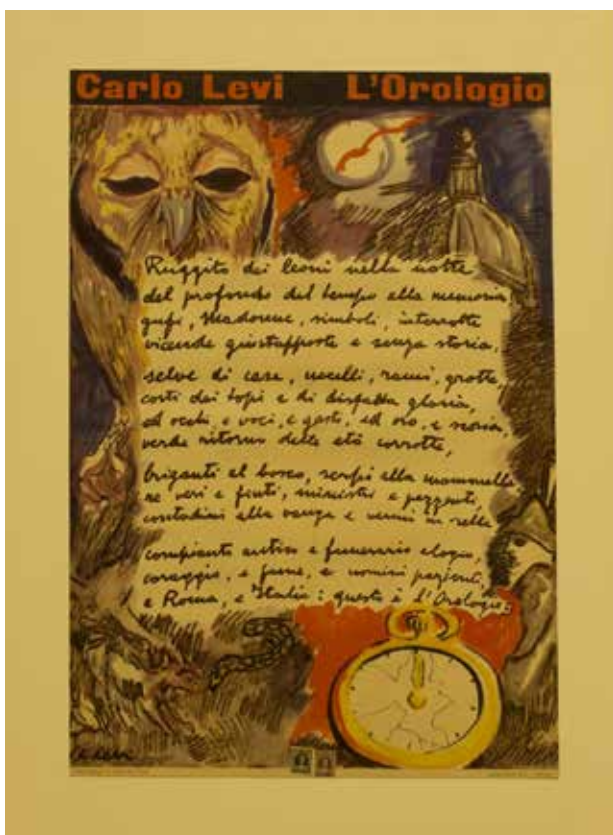 Carlo Levi L'Orologio
Ruggito dei leoni nella notte
dal profondo del tempo alla memoria,
gufi, Madonne, simboli, interrotte
vicende giustapposte e senza storia,
selve di case, uccelli, rami, grotte,
corti dei topi e di disfatta gloria,
ed occhi, e voci, e gesti, ed oro, e scoria,
verde ritorno delle età corrotte,
briganti al bosco, serpi alla mammella
re veri e finti, ministri e pezzenti,
contadini alla vanga e vermi in sella
compianto antico e funerario elogio,
coraggio, e fame, e uomini pazienti,
e Roma, e Italia: questo è l'Orologio.
C. Levi